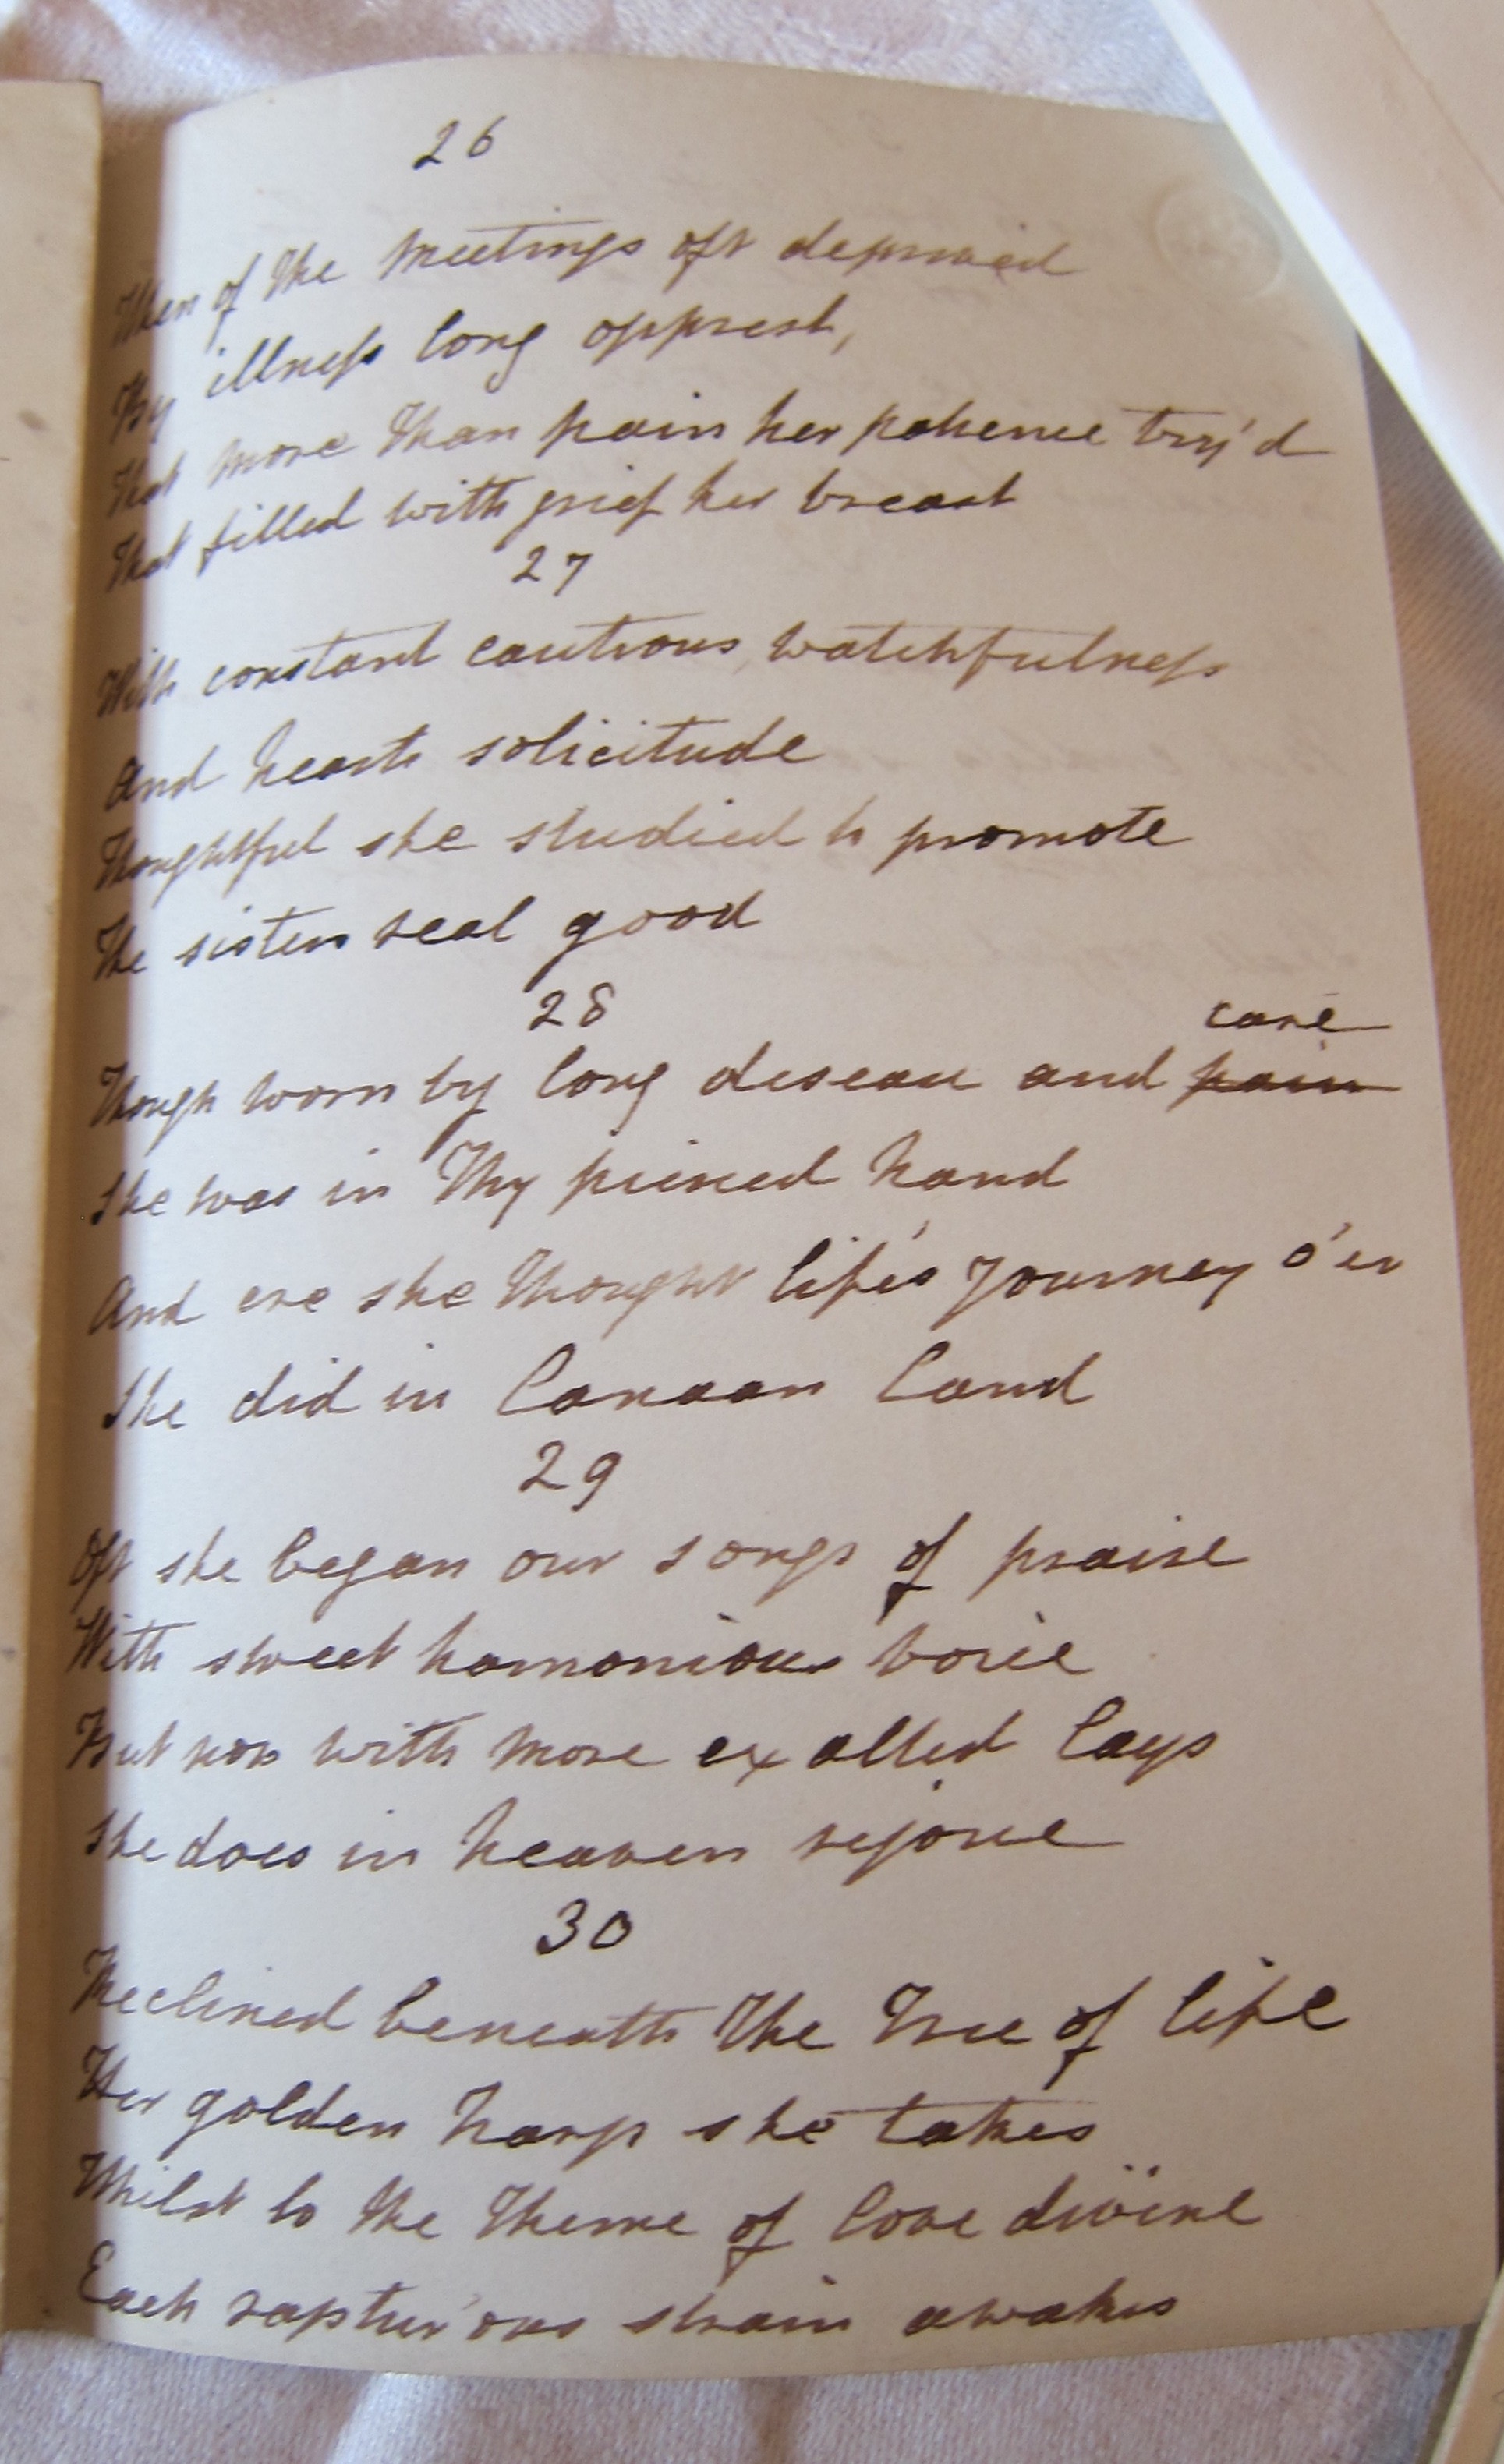 26
When of the meetings oft deprived
By illness long opprest,
That more than pain her patience try'd
That filled with grief her breast
27
With constant cautious watchfulness
And hearts solicitude
Thoughtful she studied to promote
The sisters real good
28
care
Though worn by long desease and pain
She was in Thy pierced hand
And ere she thought life's Journey o'er
She did in Canaan land
29
Oft she began our songs of praise
With sweet hamonious voice
But now with more exalted lays
She does in heaven rejoice
30
Reclined beneath the Tree of life
Her golden harp she takes
Whilst to the theme of love divine
Each raptur'ous strain awakes